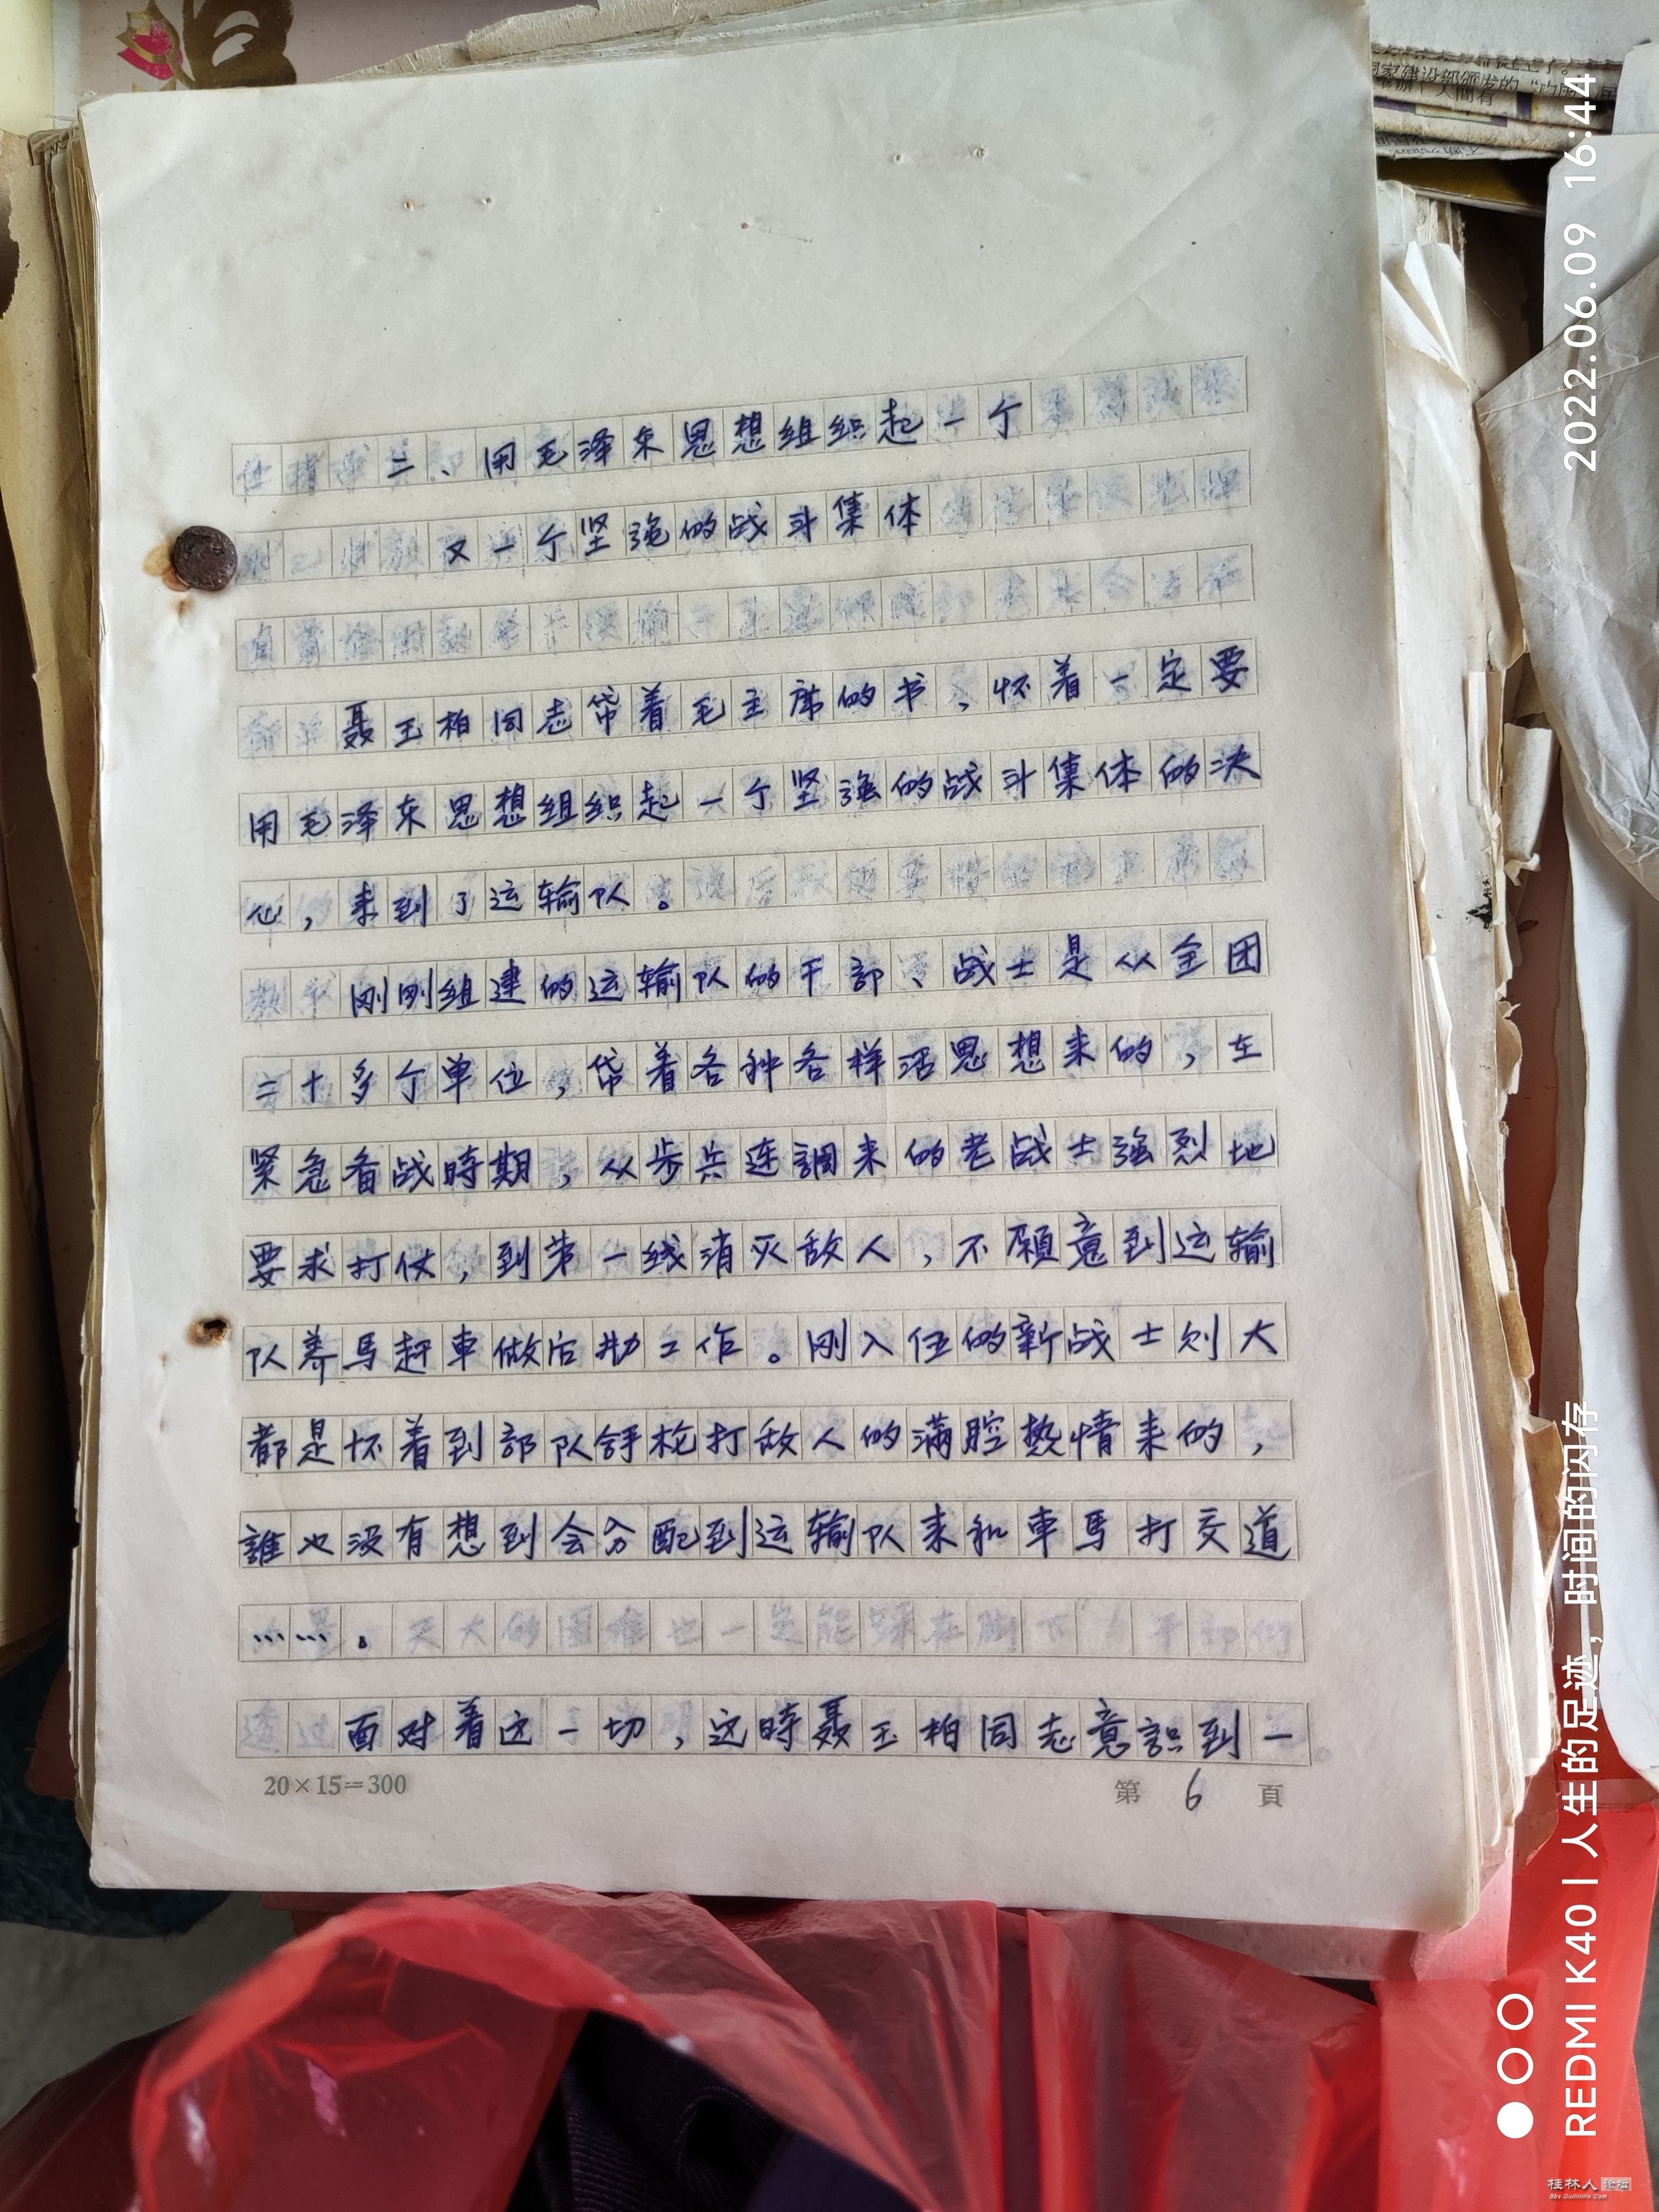 二、用毛泽东思想组织起一个
又一个坚强的战斗集体
聂玉柏同志带着毛主席的书，怀着一定要
用毛泽东思想组织起一个坚强的战斗集体的决
心，来到了运输队。
刚刚组建的运输队的干部、战士是从全团
二十多个单位，带着各种各样活思想来的，在
紧急备战時期，从步兵连調来的老战士强烈地
要求打仗，到第一线消灭敌人，不願意到运输
队养马赶車做后勤工作。刚入伍的新战士则大
都是怀着到部队拿枪打敌人的满腔热情来的，
誰也没有想到会分配到运输队来和車馬打交道
……。
面对着这一切，这時聂玉柏同志意識到一
20×15=300
第 6 頁
2022.06.09 16:44
REDMI K40 | 人生的足迹，时间的闪存
桂林人论坛
Bbs.Guilinlife.Com